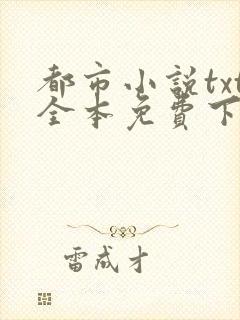 都市小説txt
全本免費下
雷成才